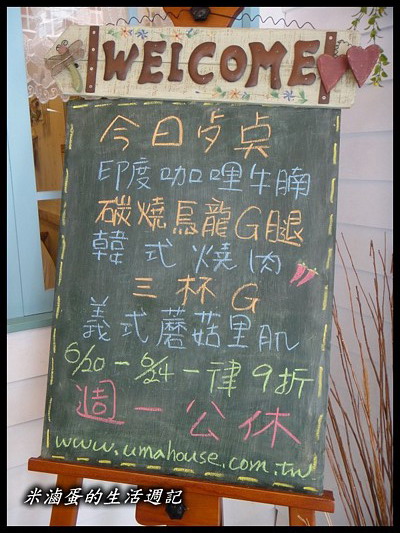 WELCOME
今日歺点
印度咖哩牛腩
碳燒烏龍G腿
韓式燒肉
三杯G
義式蘑菇里肌
6/20-6/24-一律9折
週一公休
www.umahouse.com.tw
米滷蛋的生活週記